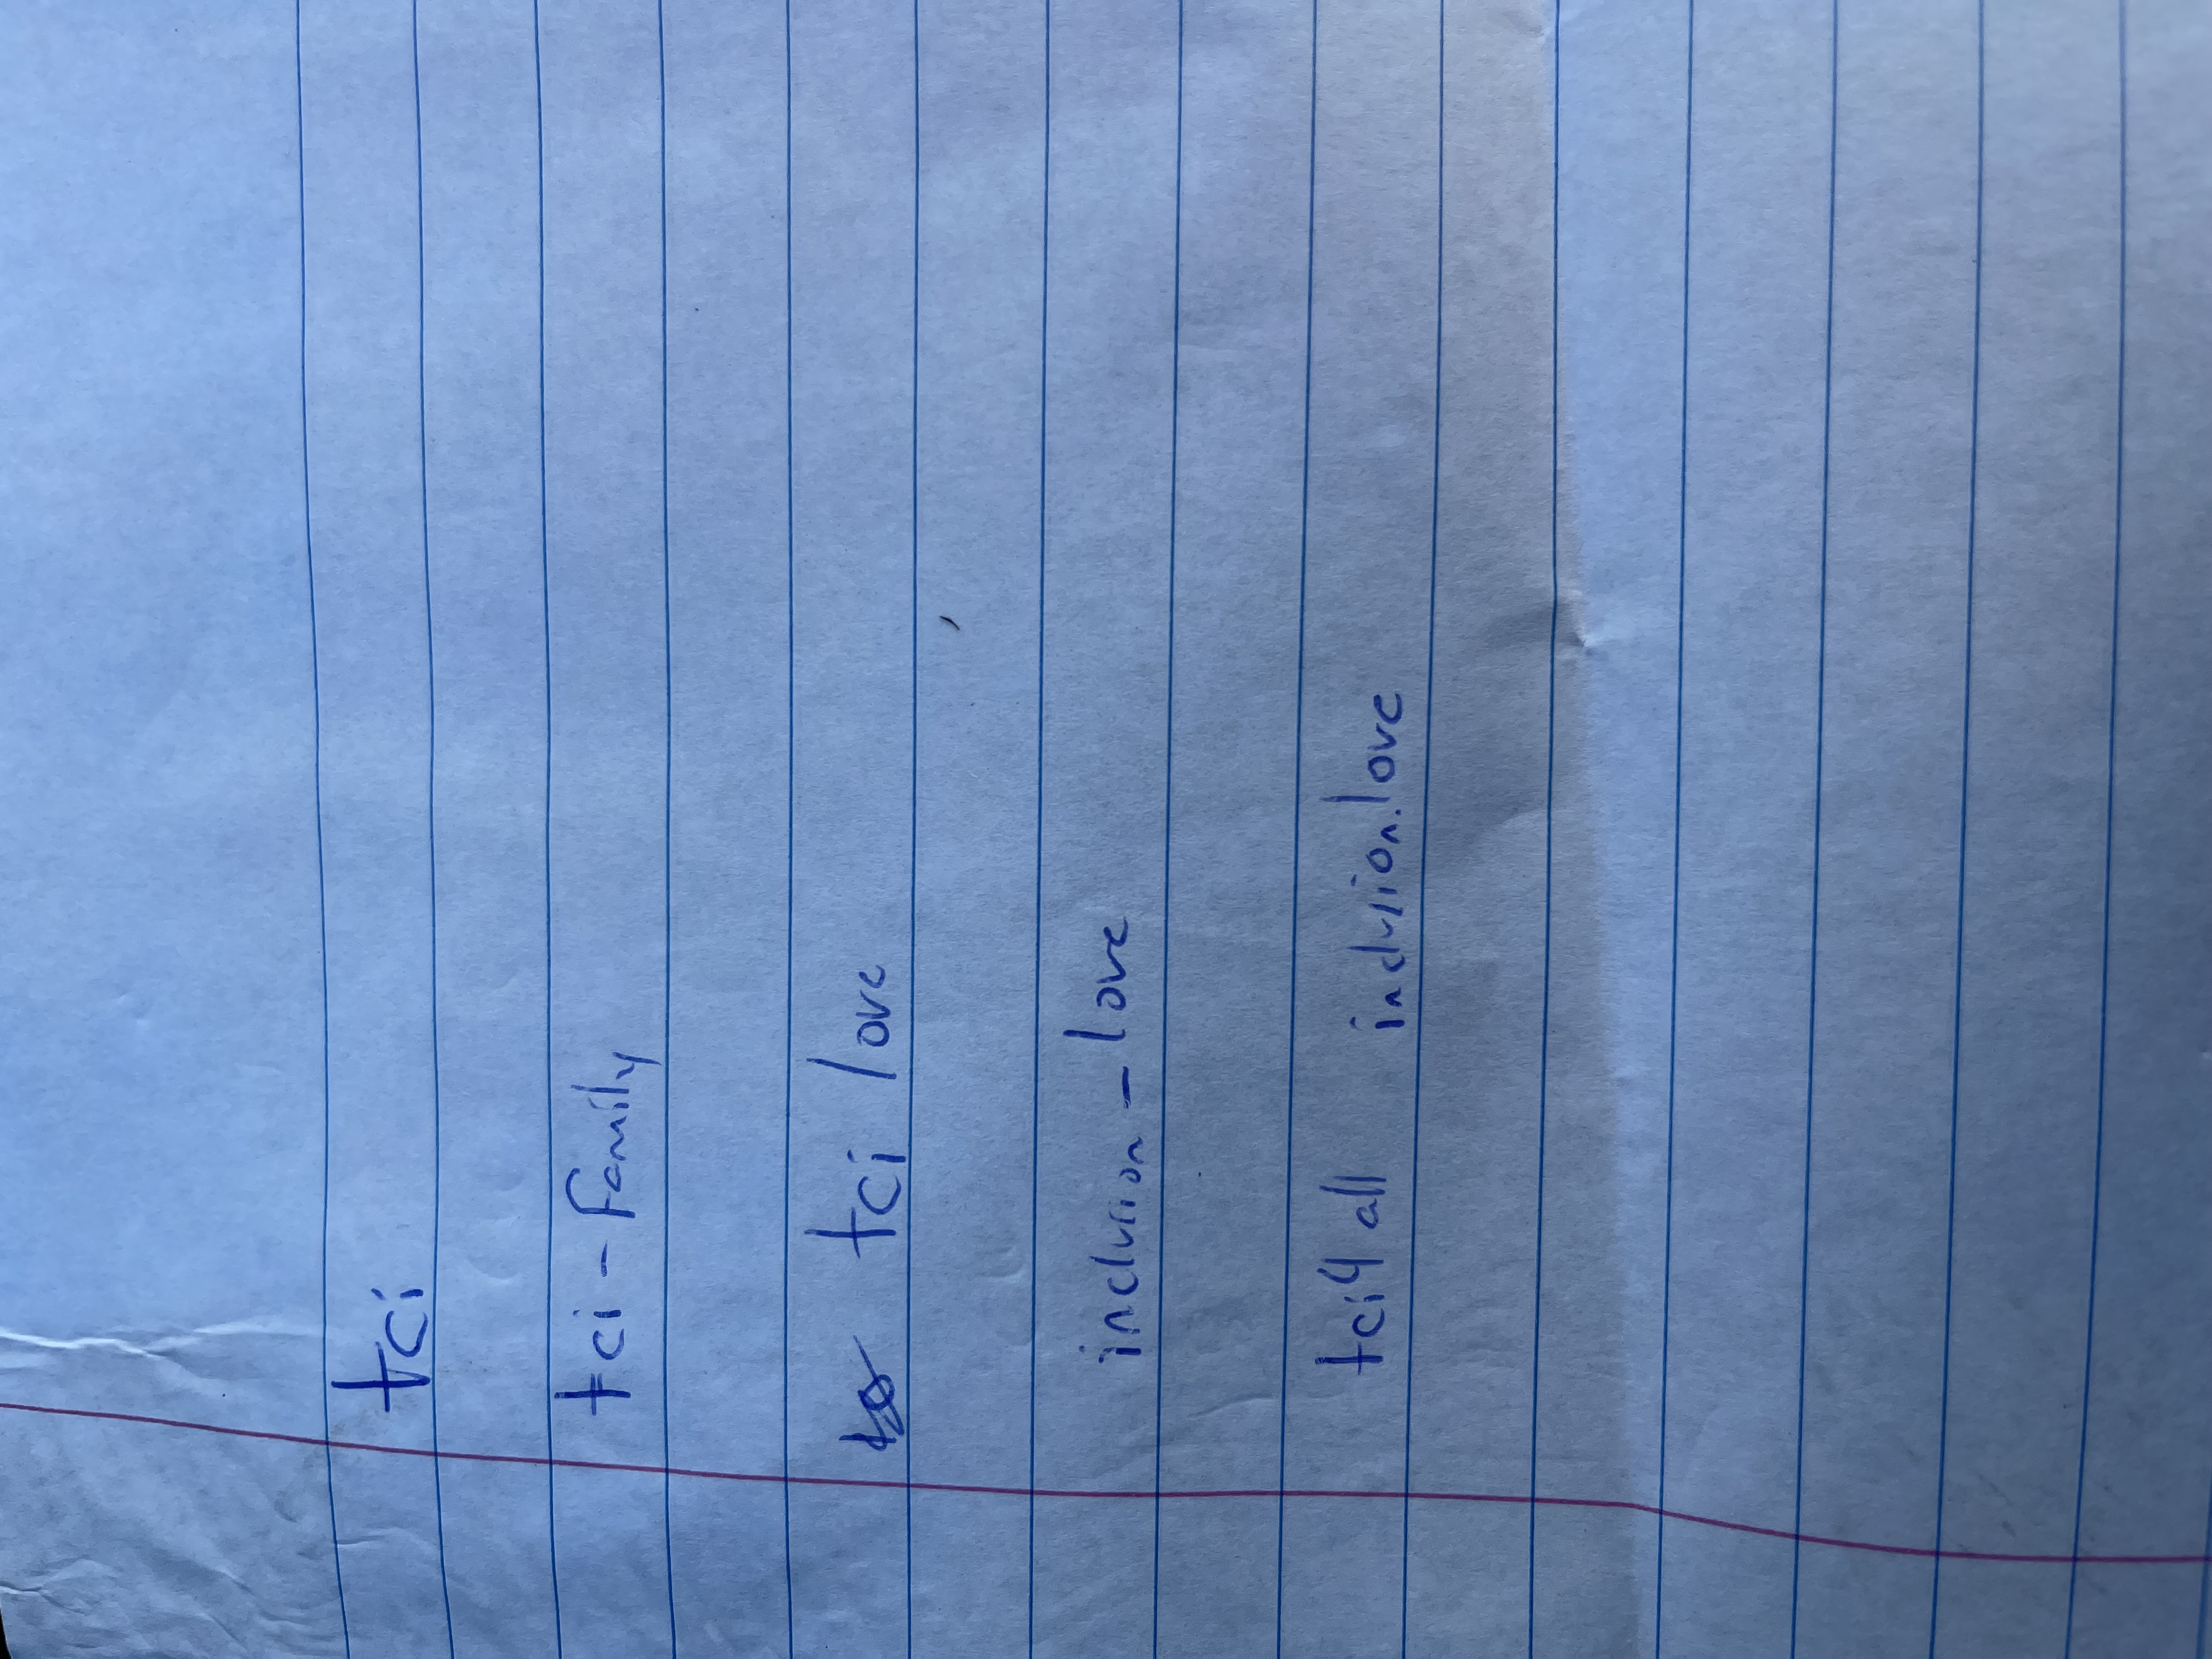 tci
tci - family
tci love
inclusion - love
tci4 all inclusion.love